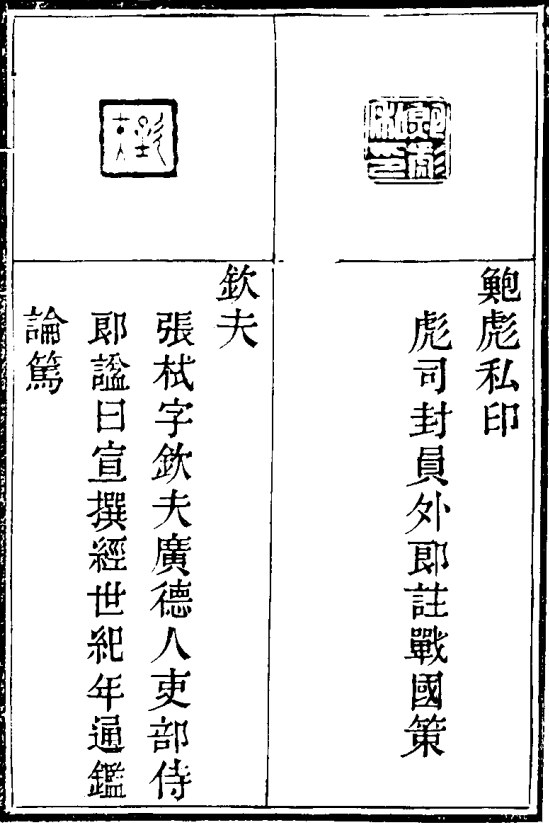 鮑彪私印
鮑彪私印
彪司封員外郎註戰國策
欽夫
欽夫
張栻字欽夫廣德人吏部侍
郎諡曰宣撰經世紀年通鑑
論篤